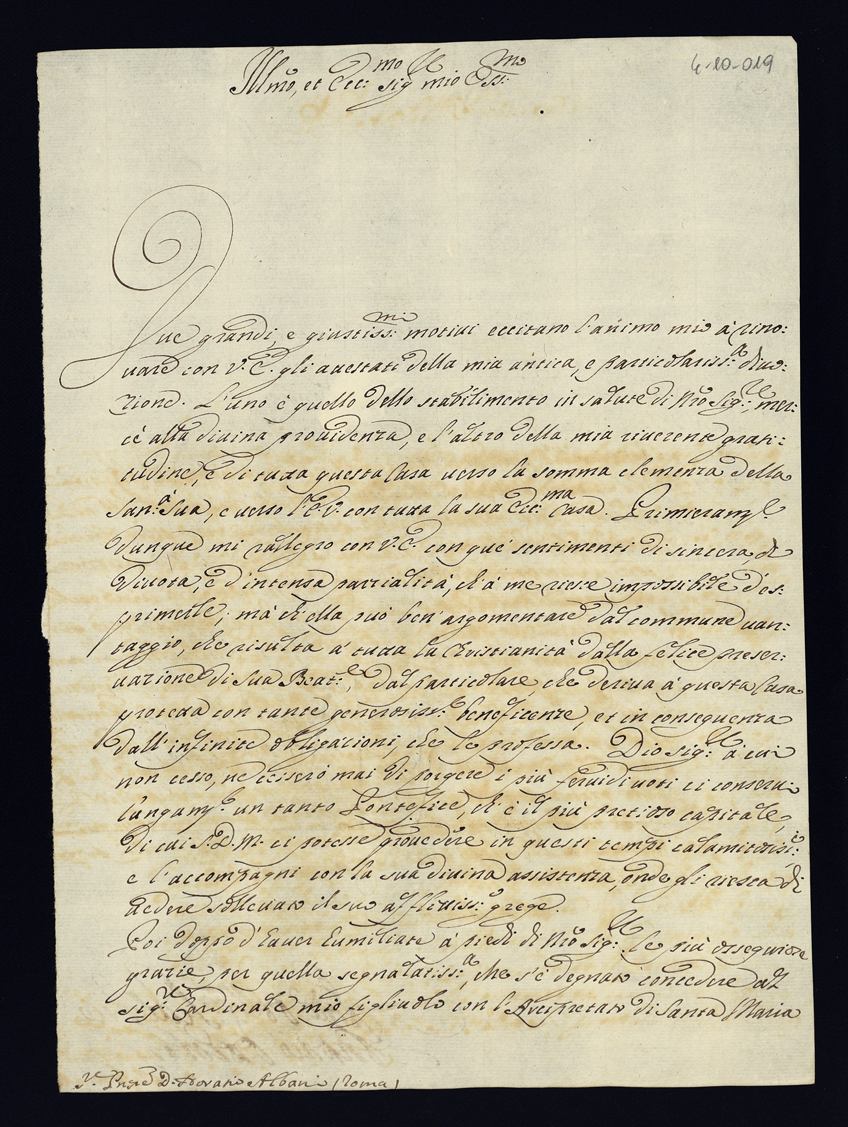 4-10-019
Illmo, et Ecc:mo Sig.r mio Oss:mo
Due grandi, e giustiss:mi motivi eccitano l'animo mio à rino:
vare con V.E. gli attestati della mia antica, e particolariss:a divo:
zione. L'uno è quello dello stabilimento in salute di Nro Sig.re, mer:
cè alla divina providenza, e l'altro della mia riverente grati:
tudine, e di tutta questa Casa verso la somma clemenza della
San:a Sua, e verso l'E.V. con tutta la sua Ecc:ma Casa. Primieram.te
dunque mi rallegro con V.E. con que' sentimenti di sincera, di
divota, e d'intensa parzialità, ch'à me riesce impossibile d'es:
primerle; mà ch'ella può ben'argomentare dal commune van:
taggio, che risulta à tutta la Cristianità dalla felice preser:
vazione di Sua Beat:e, dal particolare, che deriva à questa Casa
protetta con tante generosiss:e beneficenze, et in conseguenza
dall'infinite obligazioni, che le professa. Dio Sig.re à cui
non cesso, ne cesserò mai di porgere i più fervidi voti ci conservi
lungam.te un tanto Pontefice, ch'è il più pretioso capitale,
di cui S.D.M. ci potesse provedere in questi tempi calamitosiss:i
e l'accompagni con la sua divina assistenza, onde gli riesca di
vedere sollevato il suo afflittiss:o grege.
Poi doppo d'haver humiliate à piedi di Nro Sig.re le più ossequiose
grazie, per quella segnalatiss:a, che s'è degnato concedere al
Sig.r Cardinale mio figliuolo con l'Arcipretato di Santa Maria
D. Horatio Albani (Roma)